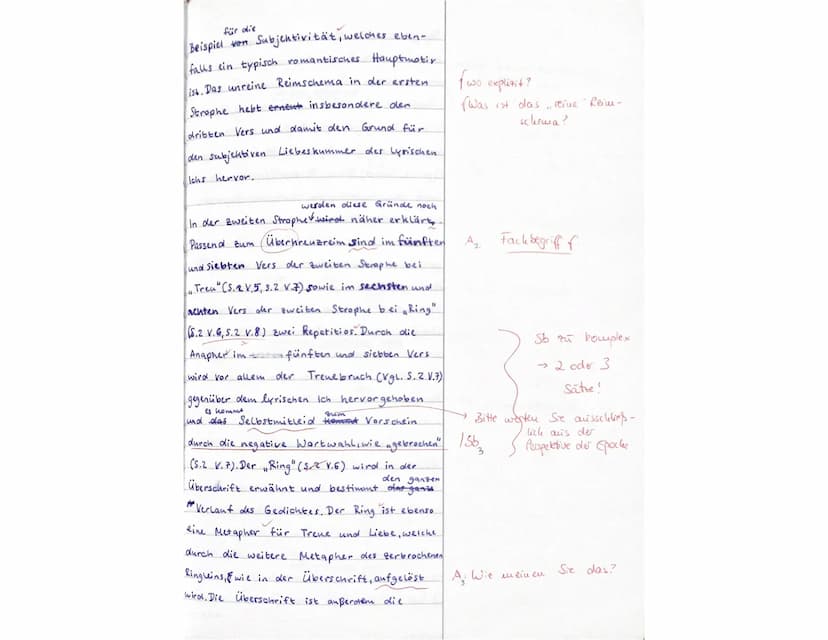 für die
Beispiel von Subjektivität, welches eben-
falls ein typisch romantisches Hauptmotiv
ist. Das unreine Reimschema in der ersten
Strophe hebt erneut insbesondere den
dritten Vers und damit den Grund für
den subjektiven Liebeskummer des lyrischen
Ichs hervor.
werden diese Gründe noch
In der zweiten Strophe wird näher erklärt.
Passend zum Überkreuzreim sind im fünften
und siebten Vers der zweiten Strophe bei
„Treu“ (S.2 V.5, S.2 V.7) sowie im sechsten und
achten Vers der zweiten Strophe bei „Ring“
(S.2 V.6, S.2 V.8) zwei Repetitios. Durch die
Anapher im fünften und siebten Vers
wird vor allem der Treuebruch (vgl. S.2 V.7)
gegenüber dem lyrischen Ich hervorgehoben
es kommt zum
und das Selbstmitleid kommt Vorschein
durch die negative Wortwahl, wie „gebrochen“
(S.2 V.7). Der „Ring“ (S.2 V.6) wird in der
den ganzen
Überschrift erwähnt und bestimmt das ganze
Verlauf des Gedichtes. Der Ring ist ebenso
eine Metapher für Treue und Liebe, welche
durch die weitere Metapher des zerbrochenen
Ringleins, wie in der Überschrift, aufgelöst
wird. Die Überschrift ist außerdem die
wo explizit?
Was ist das „reine“ Reim-
schema?
A2 Fachbegriff f
Sb zu komplex
→ 2 oder 3
Sätze!
Bitte werten Sie ausschließ-
lich aus der
Perspektive der Epoche
Sb3
A3 Wie meinen Sie das?